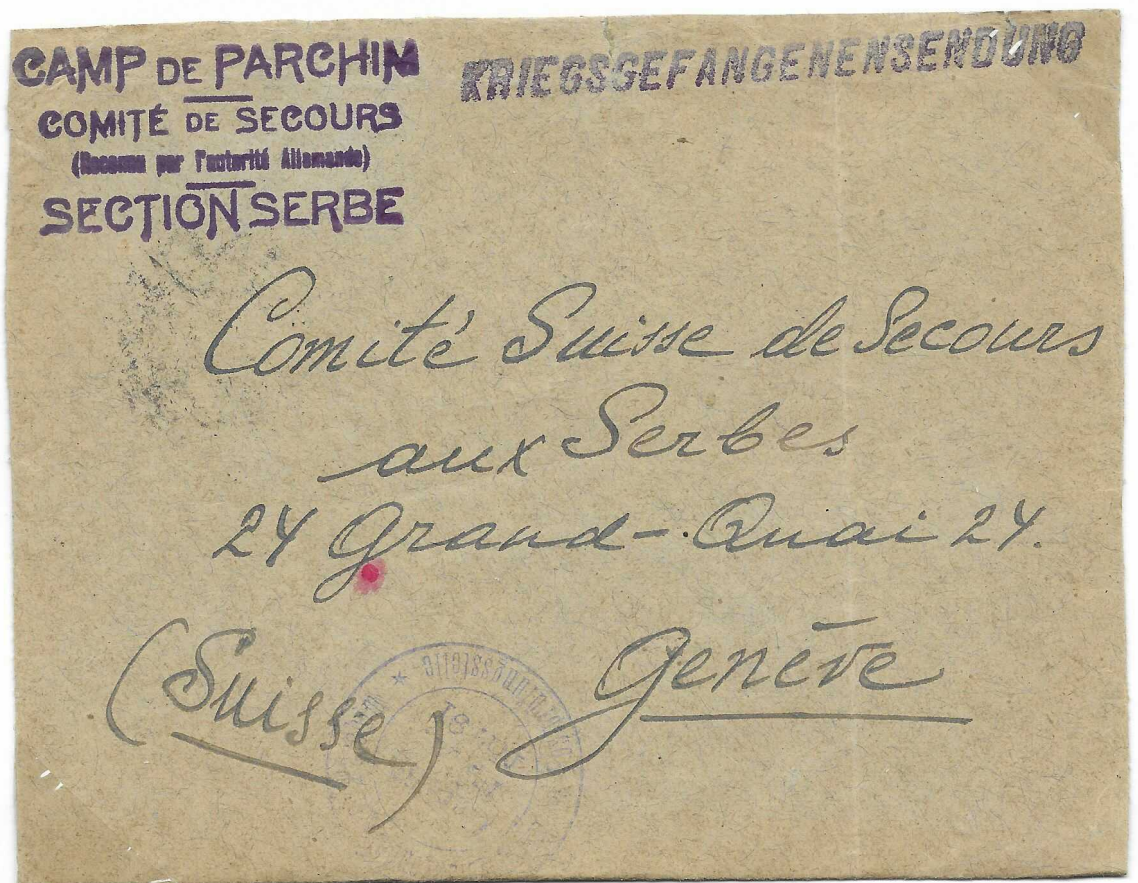 CAMP DE PARCHIM
COMITÉ DE SECOURS
(Reconnu par l'autorité Allemande)
SECTION SERBE
KRIEGSGEFANGENENSENDUNG
Comité Suisse de Secours
aux Serbes
24 Grand-Quai 24.
Genève
(Suisse)